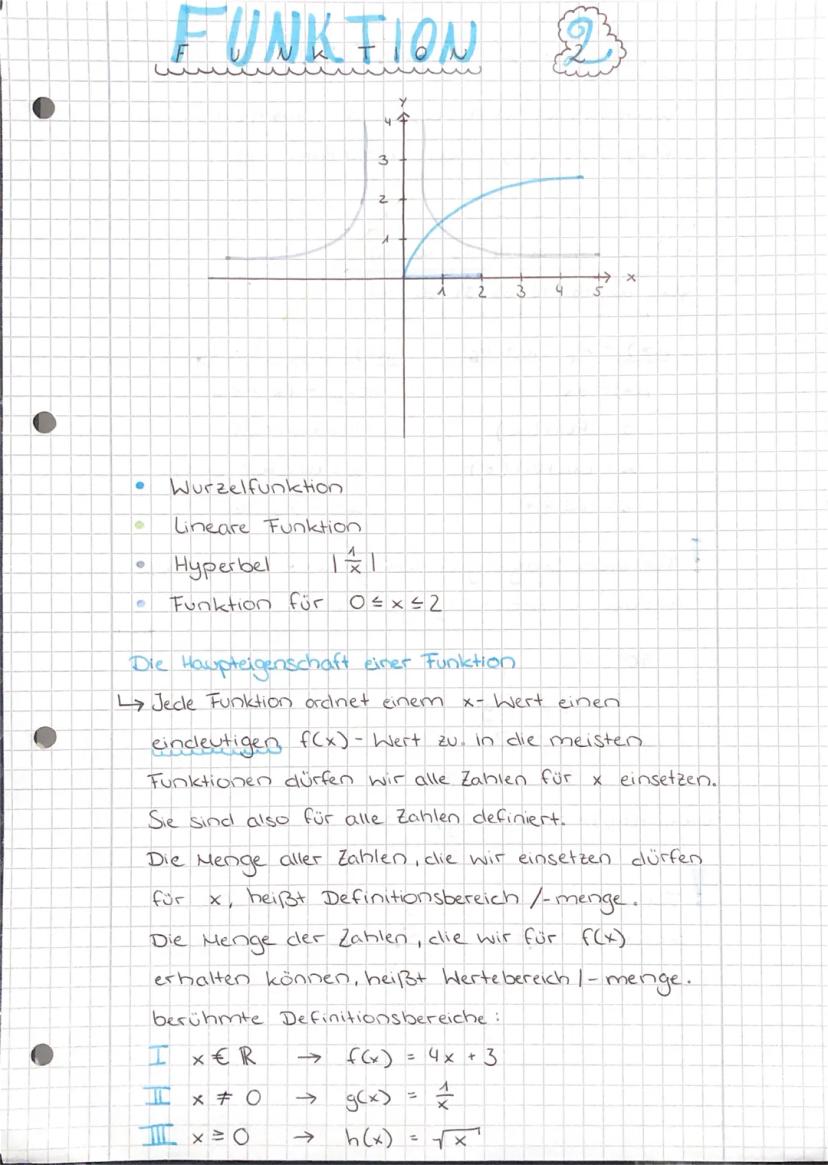 FUNKTION 2
FUNKTION 2
y
4
3
2
1
1 2 3 4 5 x
• Wurzelfunktion
• Lineare Funktion
• Hyperbel |1/x|
• Funktion für 0 ≤ x ≤ 2
Die Haupteigenschaft einer Funktion
↳ Jede Funktion ordnet einem x-Wert einen
eindeutigen f(x)-Wert zu. In die meisten
Funktionen dürfen wir alle Zahlen für x einsetzen.
Sie sind also für alle Zahlen definiert.
Die Menge aller Zahlen, die wir einsetzen dürfen
für x, heißt Definitionsbereich /-menge.
Die Menge der Zahlen, die wir für f(x)
erhalten können, heißt Wertebereich /-menge.
berühmte Definitionsbereiche:
I x ∈ ℝ → f(x) = 4x + 3
II x ≠ 0 → g(x) = 1/x
III x ≥ 0 → h(x) = √x